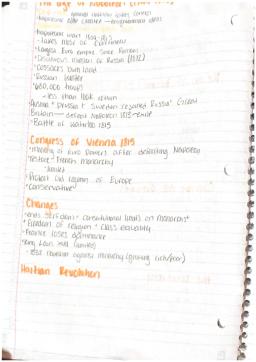 The Age of Napoleon (1799-1815)
- important war 1804-1815
- takes most of continent
- Largest Euro empire since Romans
- Disastrous invasion of Russia (1812)
- Cossacks burn land
- Russian Winter
- 600,000 troops
- less than 100k return
- Austria + Prussia + Sweden regained Russia
Britain — defeat Napoleon 1813 - exile
- Battle of Waterloo 1815
Congress of Vienna 1815
- meeting of Euro powers after defeating Napoleon
- restore French monarchy
- limited
- Protect old regimes of Europe
- Conservative
Changes
- ends serfdom + constitutional limits on monarchs
- Freedom of religion + class equality
- France loses dominance
- King Louis XVIII (limited)
- 1830 revolution against monarchy (growing rich/poor)
Haitian Revolution